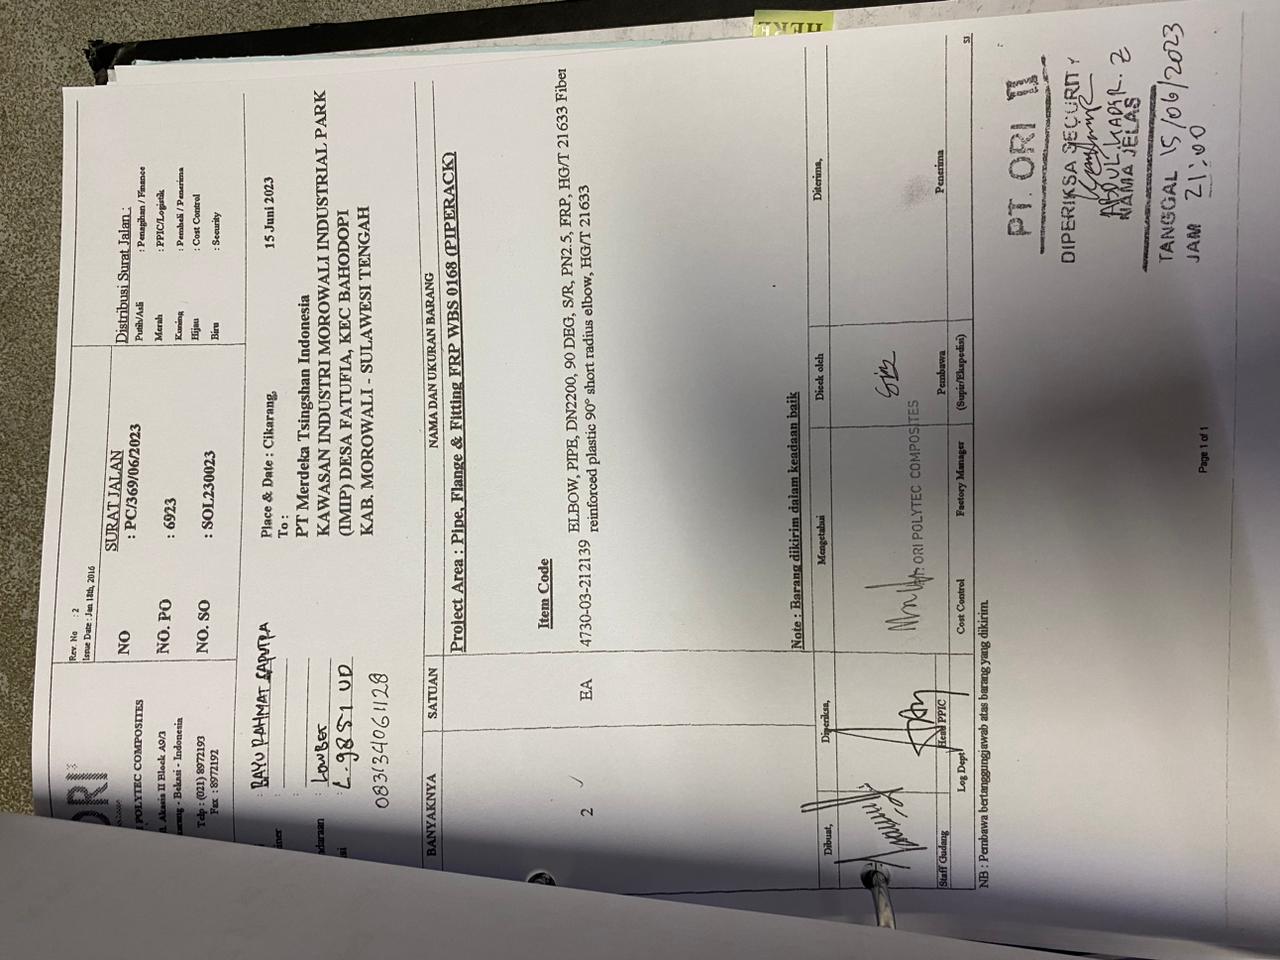 HERE
ORI
POLYTEC COMPOSITES
Akasia II Block A9/3
- Bekasi - Indonesia
Telp : (021) 8972193
Fax : 8972192
Rev. No : 2
Issue Date : Jan 18th, 2016
SURAT JALAN
NO : PC/369/06/2023
NO. PO : 6923
NO. SO : SOL230023
Distribusi Surat Jalan :
Putih/Asli : Penagihan / Finance
Merah : PPIC/Logistik
Kuning : Pembeli / Penerima
Hijau : Cost Control
Biru : Security
: BAYU RAHMAT SAPUTRA
:
: LOWBET
: L. 9851 UD
083134061128
Place & Date : Cikarang, 15 Juni 2023
To :
PT Merdeka Tsingshan Indonesia
KAWASAN INDUSTRI MOROWALI INDUSTRIAL PARK
(IMIP) DESA FATUFIA, KEC BAHODOPI
KAB. MOROWALI - SULAWESI TENGAH
BANYAKNYA SATUAN NAMA DAN UKURAN BARANG
Project Area : Pipe, Flange & Fitting FRP WBS 0168 (PIPERACK)
Item Code
2 EA 4730-03-212139 ELBOW, PIPE, DN2200, 90 DEG, S/R, PN2.5, FRP, HG/T 21633 Fiber
reinforced plastic 90° short radius elbow, HG/T 21633
Note : Barang dikirim dalam keadaan baik
Dibuat, Diperiksa, Mengetahui Dicek oleh Diterima,
ORI POLYTEC COMPOSITES
Staff Gudang Head PPIC Pembawa Penerima
Log Dept Cost Control Factory Manager (Supir/Ekspedisi)
SJ
NB : Pembawa bertanggungjawab atas barang yang dikirim.
PT. ORI II
DIPERIKSA SECURITY
ABDUL KADIR. Z
NAMA JELAS
TANGGAL 15/06/2023
JAM 21:00
Page 1 of 1